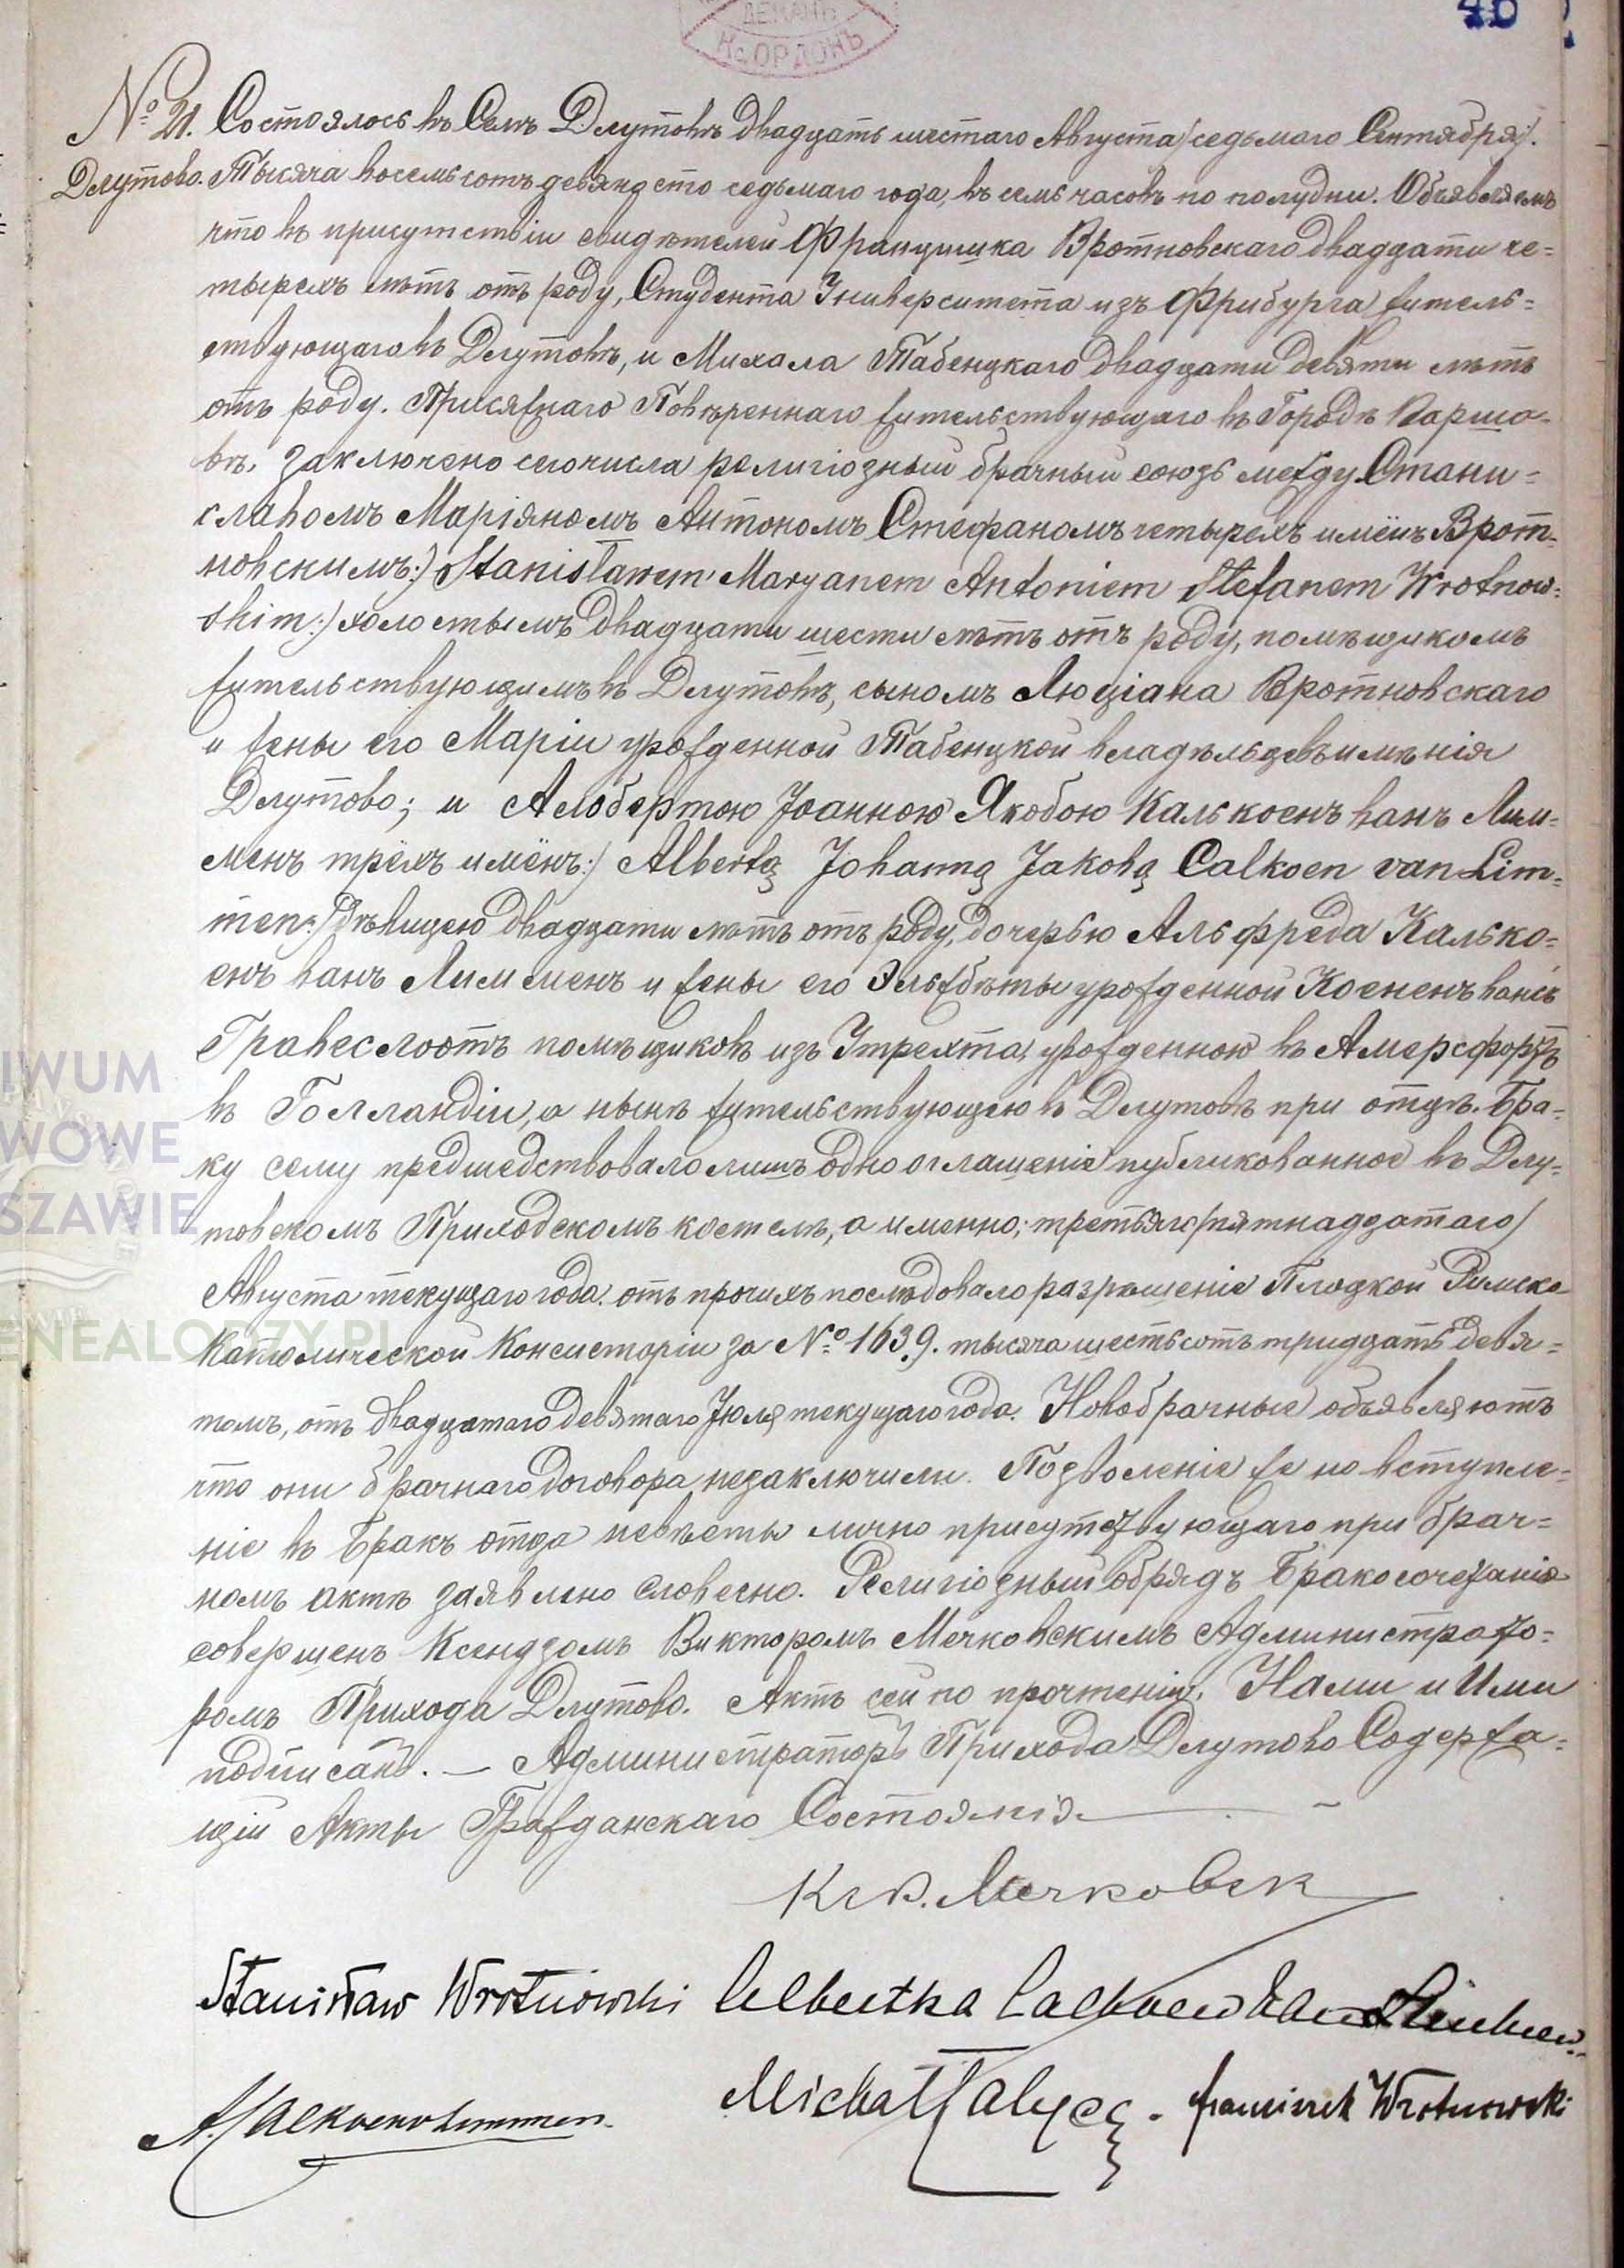 ДЕКАНЪ
46
№ 21. Состоялось въ Селѣ Длутовѣ двадцать шестаго Августа /седьмаго Сентября/.
Длутово. Тысяча восемьсотъ девяносто седьмаго года, въ семь часовъ по полудни. Объявляемъ
что въ присутствіи свидѣтелей Францишка Вротновскаго двадцати че=
тырехъ лѣтъ отъ роду, Студента Университета изъ Фрибурга житель=
ствующаго въ Длутовѣ, и Михала Табенцкаго двадцати девяти лѣтъ
отъ роду. Присяжнаго Повѣреннаго жительствующаго въ Городѣ Варша-
вѣ, заключено сегочисла религіозный брачный союзъ между Стани=
славомъ Маріяномъ Антономъ Стефаномъ четырехъ имёнъ Врот-
новскимъ:/ Stanisławem Maryanem Antoniem Stefanem Wrotnow=
skim:/ холостымъ двадцати шести лѣтъ отъ роду, помѣщикомъ
жительствующимъ въ Длутовѣ, сыномъ Люціана Вротновскаго
и жены его Маріи урожденной Табенцкой владѣльцевъ имѣнія
Длутово; и Альбертою Іоанною Якобою Калькоенъ ванъ Лим-
менъ трёхъ имёнъ:/ Albertą Johanną Jakobą Calkoen van Lim=
men:/ дѣвицею двадцати лѣтъ отъ роду, дочерью Альфреда Калько=
енъ ванъ Лимменъ и жены его Эльжбѣты урожденной Коененъ ванъ
Гравеслоотъ помѣщиковъ изъ Утрехта, урожденною въ Амерсфортѣ
въ Голландіи, а нынѣ жительствующею въ Длутовѣ при отцѣ. Бра-
ку сему предшедствовало лишь одно оглашеніе публикованное въ Длу-
товскомъ Приходскомъ костелѣ, а именно; третьяго /пятнадцатаго/
Августа текущаго года. отъ прочихъ послѣдовало разрѣшеніе Плоцкой Римско
Католической Консисторіи за № 1639. тысяча шестьсотъ тридцать девя=
томъ, отъ двадцатаго девятаго Іюля текущаго года. Новобрачные объявляютъ
что они брачнаго договора незаключили. Позволеніе же на вступле=
ніе въ Бракъ отца невѣсты лично присутствующаго при брач=
номъ актѣ заявлено словесно. Религіозный обрядъ Бракосочетанія
совершенъ Ксендзомъ Викторомъ Мечковскимъ Администрато=
ромъ Прихода Длутово. Актъ сей по прочтеніи, Нами и Ими
подписанъ. — Администраторъ Прихода Длутово Содержа=
щій Акты Гражданскаго Состоянія
Кс. В. Мечковск
Stanisław Wrotnowski Albertha Calkoen van Limmen
A. Calkoen v Limmen. Michał Franciszek Wrotnowski
IWUM
WOWE
SZAWIE
ENEALODZY.PL